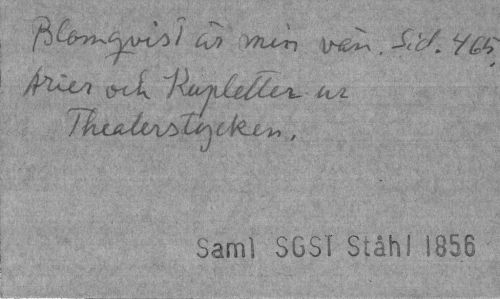 Blomqvist är min vän. Sid. 465.
Arier och Kupletter ur
Theaterstycken.
Saml SGST Ståhl 1856